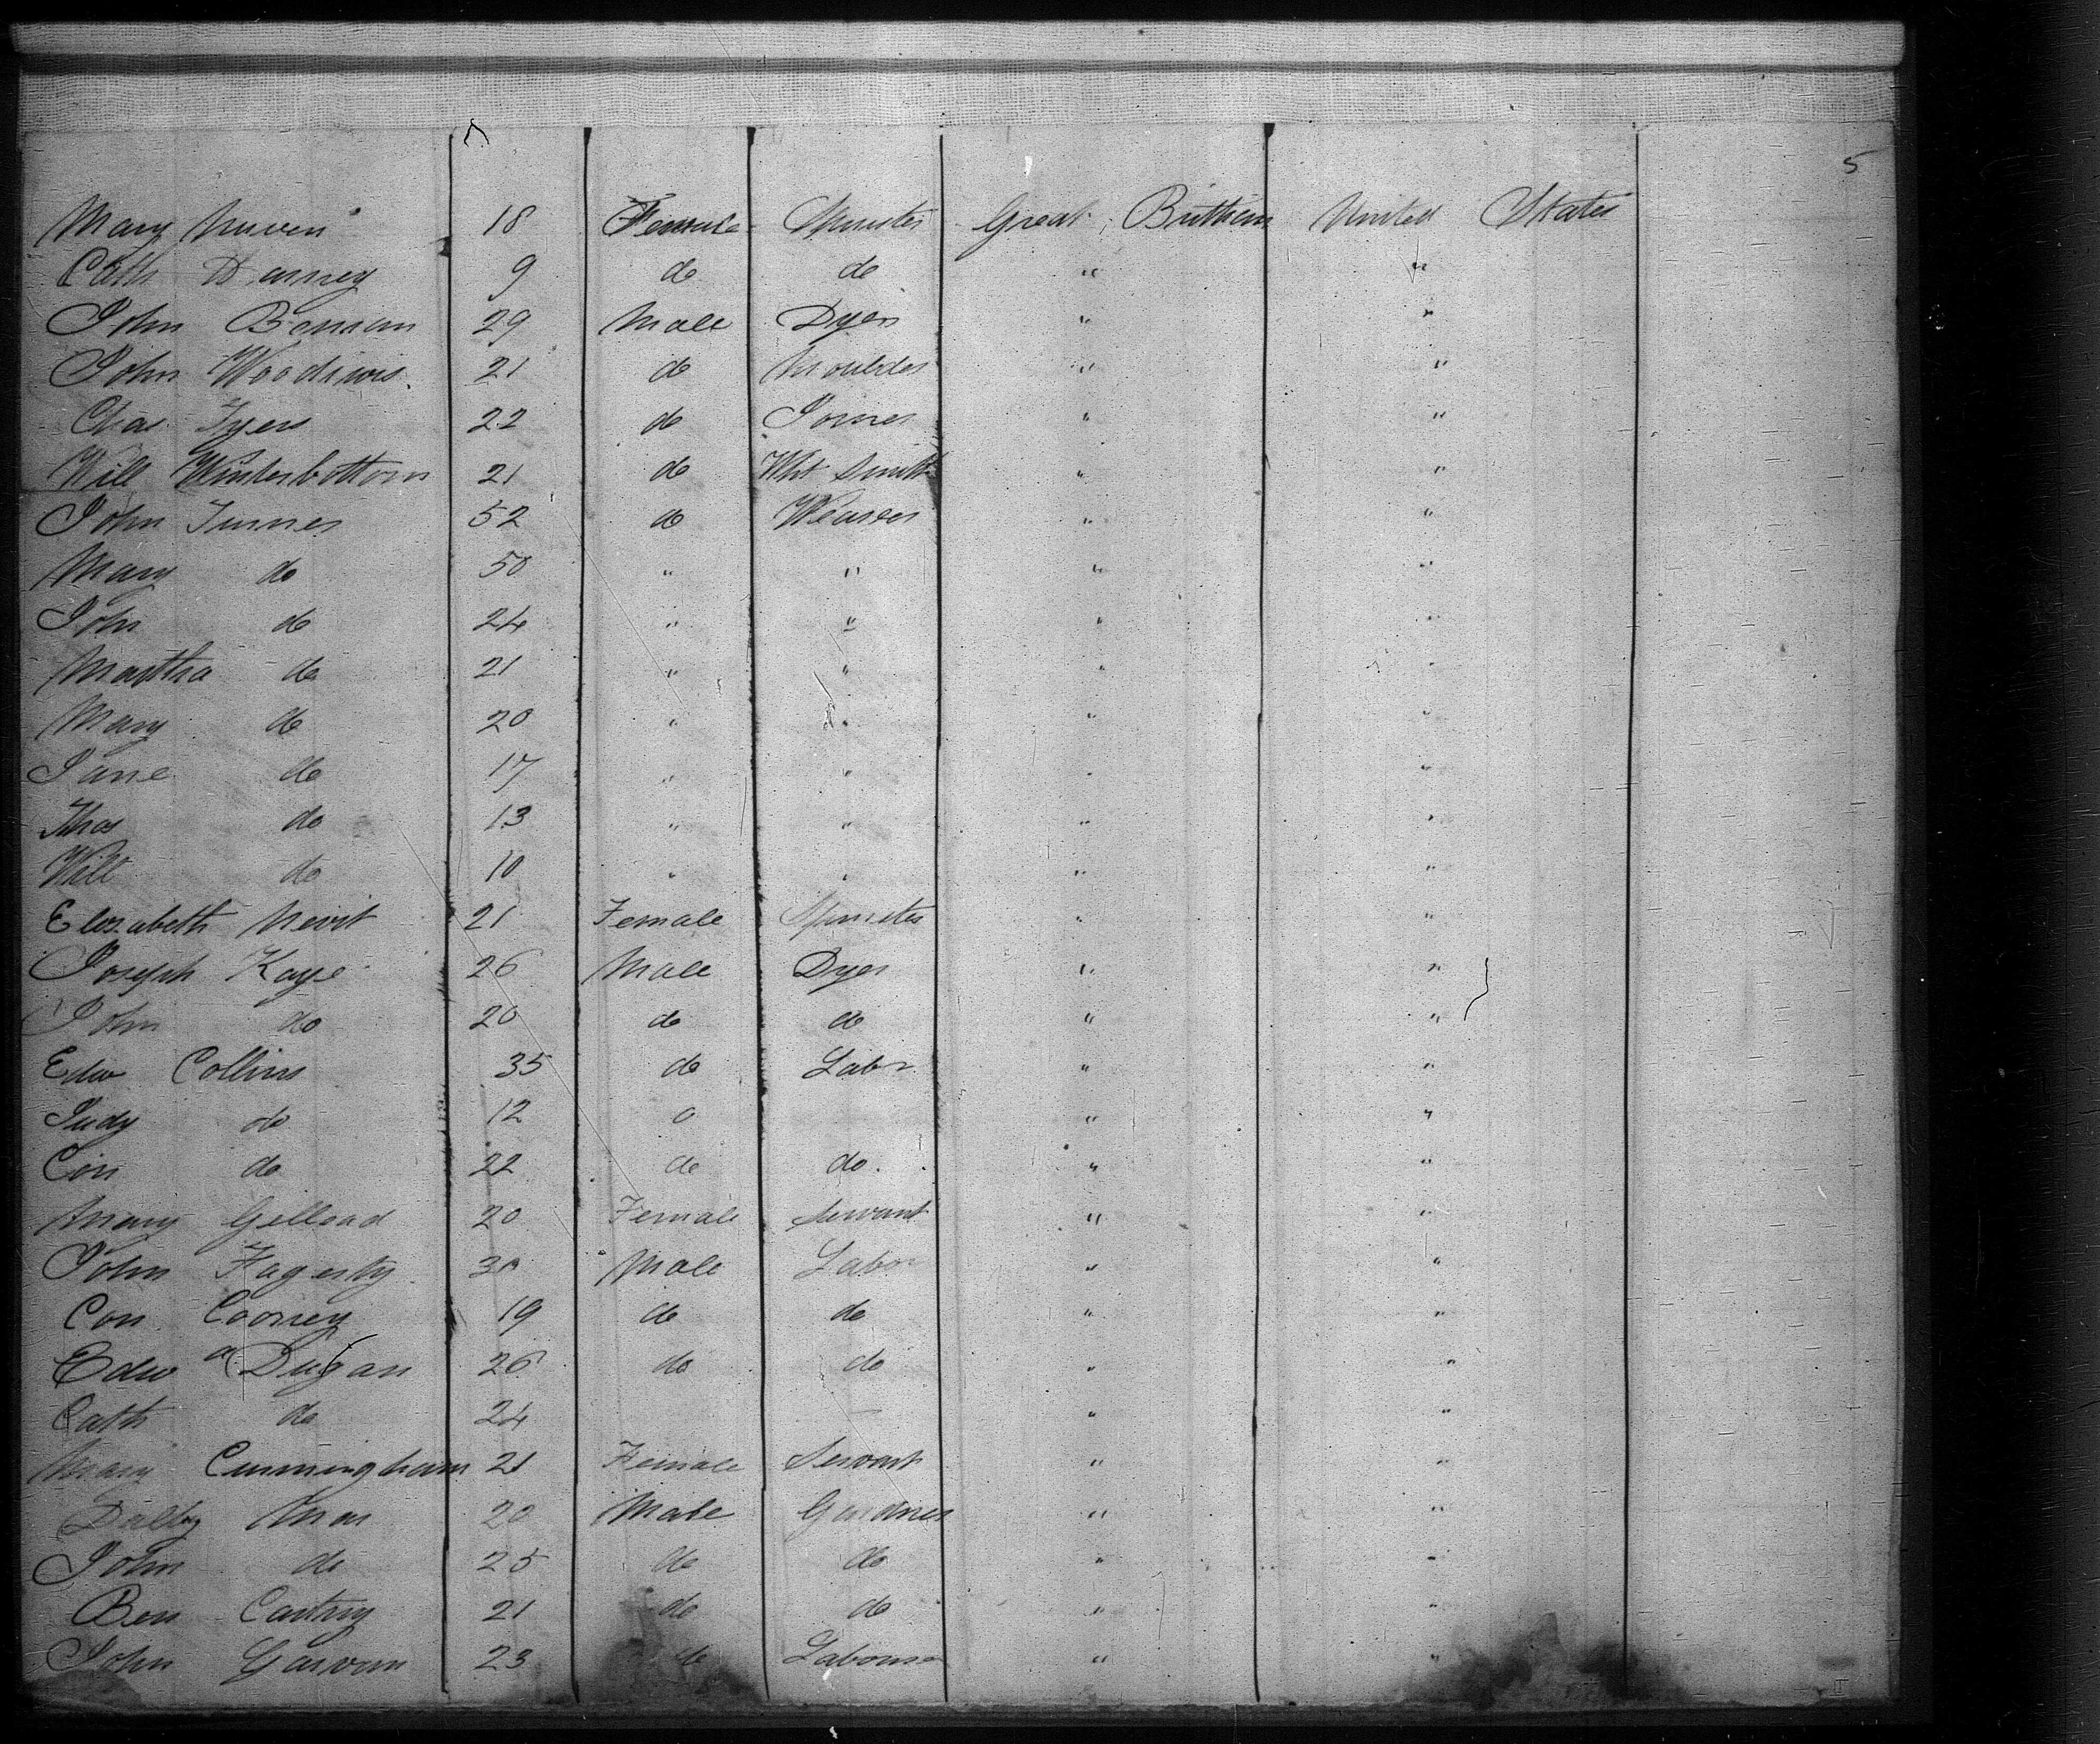 5
Mary Niven 18 Female Spinster Great Brittian United States
Cath Darney 9 do do " "
John Benson 29 Male Dyer " "
John Woodiwis 21 do Moulder " "
Chas Tyers 22 do Joiner " "
Will Winterbottom 21 do Wht Smith " "
John Turner 52 do Weaver " "
Mary do 50 " " " "
John do 24 " " " "
Martha do 21 " " " "
Mary do 20 " " " "
Jane do 17 " " " "
Thos do 13 " " " "
Will do 10 " " " "
Elizabeth Nevit 21 Female Spinster " "
Joseph Kaye 26 Male Dyer " "
John do 20 do do " "
Edw Collins 35 do Labr " "
Judy do 12 " "
Con do 22 do do " "
Mary Gilload 20 Female Servant " "
John Fagerty Male Labor " "
Con Cooney 19 do do " "
Edw Dugan 26 do do " "
Cath do 24 " "
Mary Cunningham 21 Female Servant " "
Dalby Thos 20 Male Gardner " "
John do 25 do do " "
Ben Cartny 21 do do " "
John Garvan 23 do Labourer " "